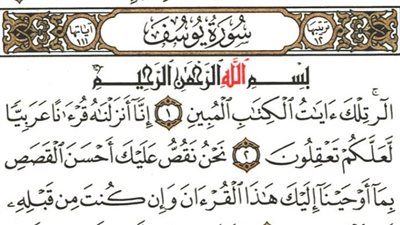 ترتيبها ١٢ سُورَةُ يُوسُفَ آياتها ١١١
بِسْمِ اللَّهِ الرَّحْمَٰنِ الرَّحِيمِ
الٓر ۚ تِلْكَ ءَايَٰتُ ٱلْكِتَٰبِ ٱلْمُبِينِ ١ إِنَّآ أَنزَلْنَٰهُ قُرْءَٰنًا عَرَبِيًّا
لَّعَلَّكُمْ تَعْقِلُونَ ٢ نَحْنُ نَقُصُّ عَلَيْكَ أَحْسَنَ ٱلْقَصَصِ
بِمَآ أَوْحَيْنَآ إِلَيْكَ هَٰذَا ٱلْقُرْءَانَ وَإِن كُنتَ مِن قَبْلِهِۦ